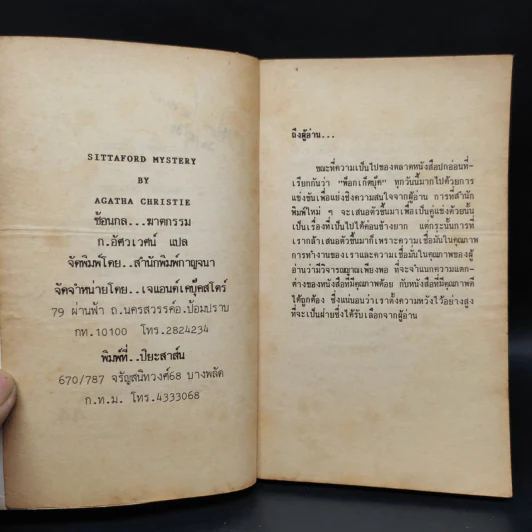 SITTAFORD MYSTERY
BY
AGATHA CHRISTIE
ซ้อนกล...ฆาตกรรม
ก.อัศวเวศน์ แปล
จัดพิมพ์โดย..สำนักพิมพ์กาญจนา
จัดจำหน่ายโดย..เจแอนด์เคบุ๊คสโตร์
79 ผ่านฟ้า ถ.นครสวรรค์อ.ป้อมปราบ
กท.10100 โทร.2824234
พิมพ์ที่..ปิยะสาส์น
670/787 จรัญสนิทวงศ์68 บางพลัด
ก.ท.ม. โทร.4333068
ถึงผู้อ่าน...
ขณะที่ความเป็นไปของตลาดหนังสือปกอ่อนที่-
เรียกกันว่า "พ็อกเก็ตบุ๊ค" ทุกวันนี้มากไปด้วยการ
แข่งขันเพื่อแย่งชิงความสนใจจากผู้อ่าน การที่สำนัก
พิมพ์ใหม่ ๆ จะเสนอตัวขึ้นมาเพื่อเป็นคู่แข่งด้วยนั้น
เป็นเรื่องที่เป็นไปได้ค่อนข้างยาก แต่กระนั้นการที่
เรากล้าเสนอตัวขึ้นมาก็เพราะความเชื่อมั่นในคุณภาพ
การทำงานของเราและความเชื่อมั่นในคุณภาพของผู้
อ่านว่ามีวิจารณญาณเพียงพอ ที่จะจำแนกความแตก-
ต่างของหนังสือที่มีคุณภาพด้อย กับหนังสือที่มีคุณภาพดี
ได้ถูกต้อง ซึ่งแน่นอนว่าเราตั้งความหวังไว้อย่างสูง
ที่จะเป็นฝ่ายซึ่งได้รับเลือกจากผู้อ่าน